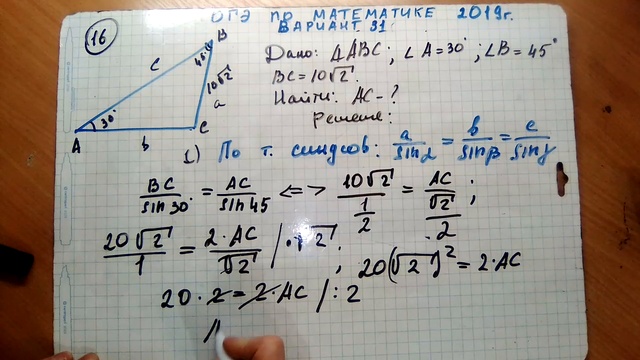 ОГЭ по МАТЕМАТИКЕ 2019г.
ВАРИАНТ 31
16
B
45°
c
10√2
a
30°
A
b
C
Дано: ΔABC; ∠A=30°; ∠B=45°
BC=10√2.
Найти: AC-?
Решение:
1) По т. синусов: a/sinα = b/sinβ = c/sinγ
BC/sin30° = AC/sin45 <=> 10√2/(1/2) = AC/(√2/2);
20√2/1 = 2·AC/√2 /·√2; 20(√2)² = 2·AC
20·2=2·AC /:2